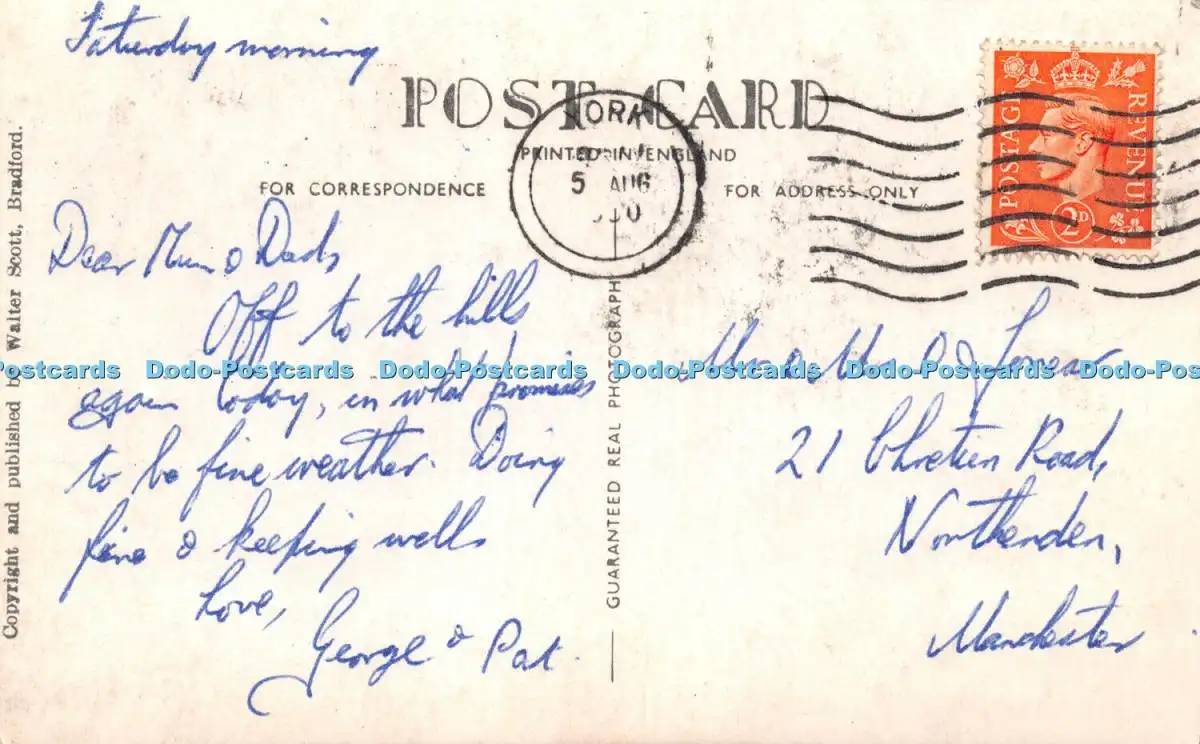 Saturday morning
POST CARD
PRINTED IN ENGLAND
FOR CORRESPONDENCE
FOR ADDRESS ONLY
YORK
5 AUG
POSTAGE
REVENUE
2D
Copyright and published by Walter Scott, Bradford.
GUARANTEED REAL PHOTOGRAPH
Dear Mum & Dad,
Off to the hills
again today, in what promises
to be fine weather. Doing
fine & keeping well,
Love,
George & Pat.
Mr & Mrs
21 Chretien Road,
Northenden,
Manchester
Dodo-Postcards Dodo-Postcards Dodo-Postcards Dodo-Postcards